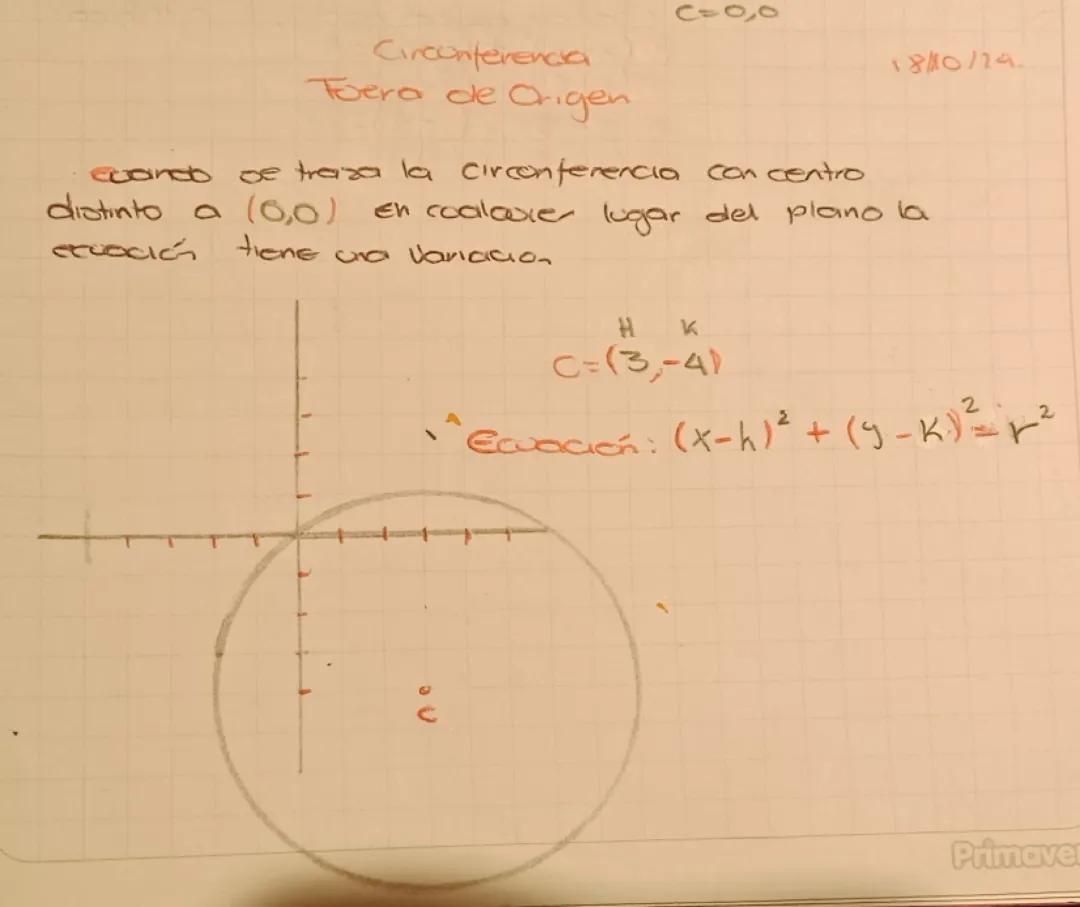 C=0,0
Circunferencia
18/10/24.
Fuera de Origen
cuando se traza la circunferencia con centro
distinto a (0,0) En cualquier lugar del plano la
ecuación tiene una variacion
H K
C=(3,-4)
Ecuación: (x-h)² + (y-K)² = r²
C
Primaver